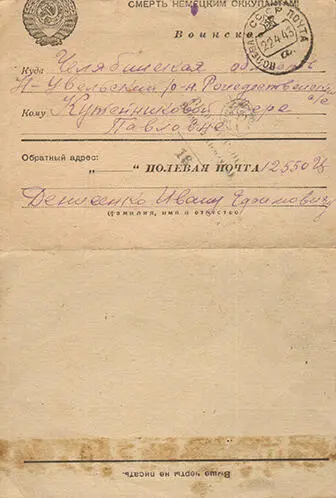 СМЕРТЬ НЕМЕЦКИМ ОККУПАНТАМ!
Воинск
СССР ПОЧТА
22.4.43
Куда Челябинская область
Н-Увельский р-н Рождественский с/с
Кому Кутейниковой Вере
Павловне
Обратный адрес:
„ “ ПОЛЕВАЯ ПОЧТА 12550 Ц
Денисенко Ивану Ефимовичу
(фамилия, имя и отчество)
Выше черты не писать.